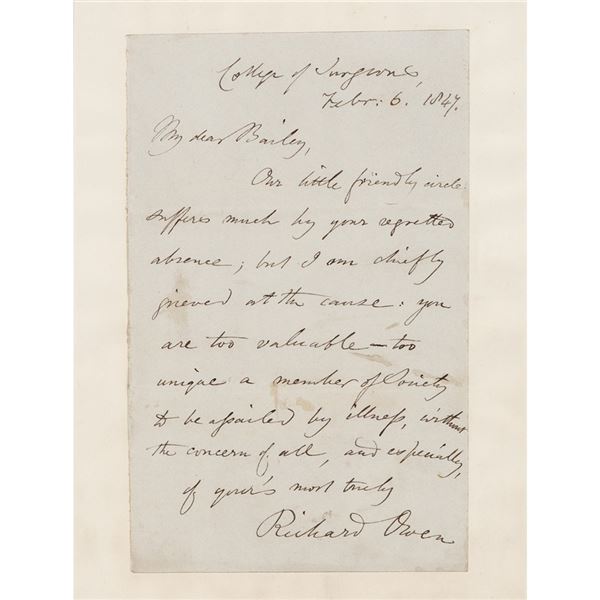 College of Surgeons,
Febr: 6. 1847.
My dear Bailey,
Our little friendly circle
suffers much by your regretted
absence; but I am chiefly
grieved at the cause: you
are too valuable – too
unique a member of Society
to be assailed by illness, without
the concern of all, and especially,
of your's most truly
Richard Owen